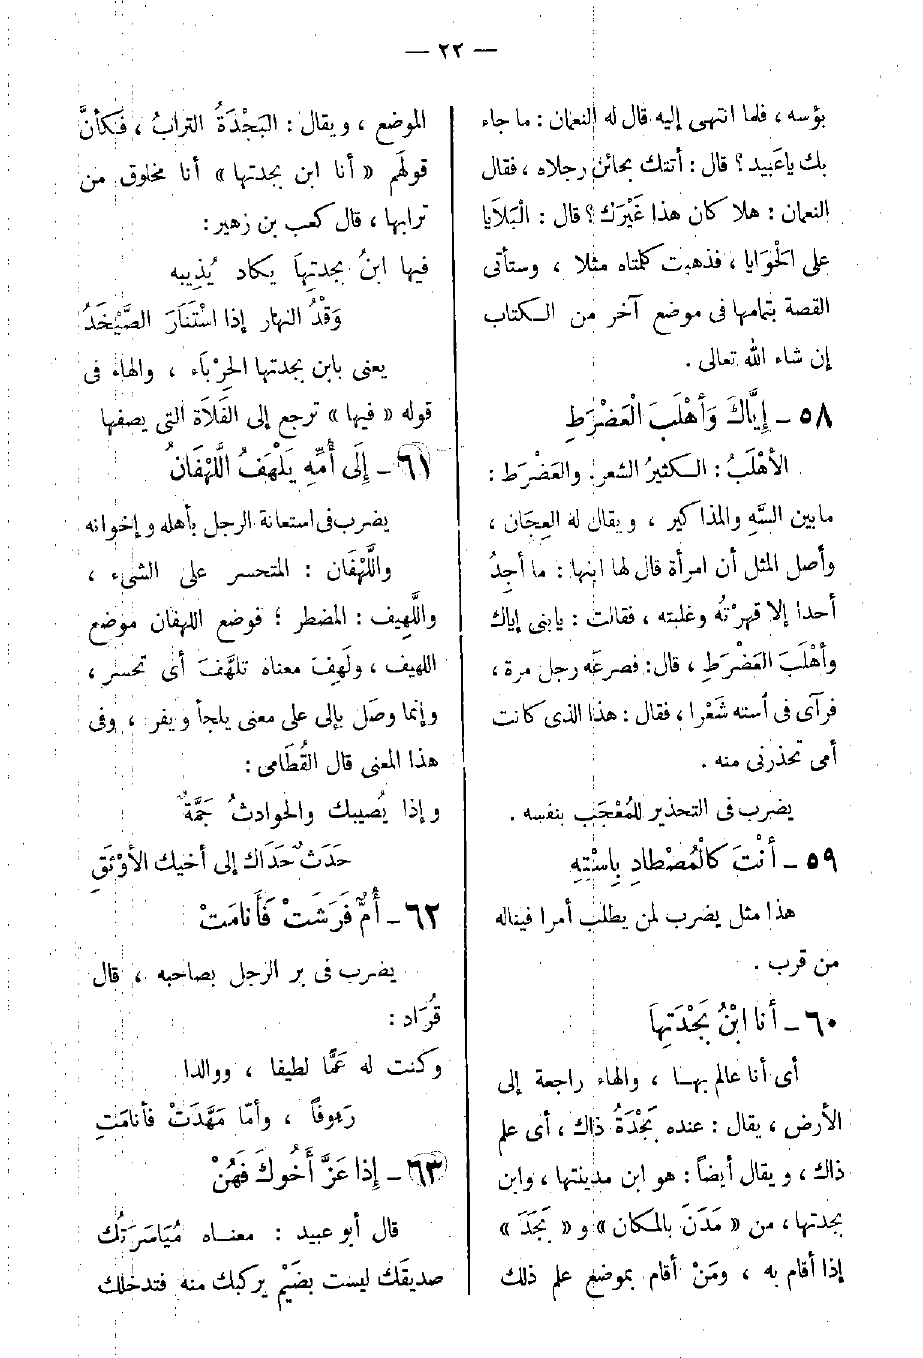 — ٢٢ —
بؤسه ، فلما انتهى إليه قال له النعمان : ما جاء
بك ياعَبيد ؟ قال : أتتك بحائن رجلاه ، فقال
النعمان : هلا كان هذا غَيْرَك ؟ قال : الْبَلاَيا
على الْحَوَايا ، فذهبت كلمتاه مثلا ، وستأتى
القصة بتمامها فى موضع آخر من الكتاب
إن شاء الله تعالى .
٥٨ - إِيَّاكَ وَأَهْلَبَ الْعَضْرَطِ
الأَهْلَبُ : الكثيرُ الشعر . والعَضْرَط :
ما بين السَّهِ والمذاكير ، ويقال له العِجَان ،
وأصل المثل أن امرأة قال لها ابنها : ما أجِدُ
أحدا إلا قهرْتُه وغلبته ، فقالت : يابنى إياك
وأهْلَبَ العَضْرَطِ ، قال : فصرعَه رجل مرة ،
فرآى فى أسته شَعْرا ، فقال : هذا الذى كانت
أمى تحذرنى منه .
يضرب فى التحذير للمُعْجَب بنفسه .
٥٩ - أَنْتَ كالْمُصْطادِ بِاسْتِهِ
هذا مثل يضرب لمن يطلب أمرا فيناله
من قرب .
٦٠ - أنا ابْنُ بَجْدَتِهاَ
أى أنا عالم بها ، والهاء راجعة إلى
الأرض ، يقال : عنده بَجْدَةُ ذاك ، أى علم
ذاك ، ويقال أيضاً : هو ابن مدينتها ، وابن
بجدتها ، من « مَدَنَ بالمكان » و « بَجَدَ »
إذا أقام به ، ومَنْ أقام بموضع علم ذلك
الموضع ، ويقال : البَجْدَةُ التراب ، فكأنَّ
قولهم « أنا ابن بجدتها » أنا مخلوق من
ترابها ، قال كعب بن زهير :
فيها ابنُ بجدتهاَ يكاد يُذِيبه
وَقْدُ النهار إذا اسْتَنَارَ الصَّيْخَدُ
يعنى بابن بجدتها الحِرْبَاء ، والهاء فى
قوله « فيها » ترجع إلى الفَلاَة التى يصفها
٦١ - إِلَى أُمِّهِ يَلْهَفُ اللَّهْفَانُ
يضرب فى استعانة الرجل بأهله وإخوانه
واللَّهْفَان : المتحسر على الشىء ،
واللَّهِيف : المضطر ؛ فوضع اللهفان موضع
اللهيف ، ولَهِفَ معناه تلَهَّفَ أى تحسر ،
وإنما وصَل بإلى على معنى يلجأ ويفر ، وفى
هذا المعنى قال القُطَامى :
وإذا يُصيبك والحوادثُ جَمَّةٌ
حَدَثٌ حَدَاك إلى أخيك الأوْثَقِ
٦٢ - أُمٌّ فَرَشَتْ فَأَنامَتْ
يضرب فى بر الرجل بصاحبه ، قال
قُرَاد :
وكنت له عَمًّا لطيفا ، ووالدا
رَءوفاً ، وأمّا مَهَّدَتْ فأنامَتِ
٦٣ - إذا عَزَّ أَخُوكَ فَهُنْ
قال أبو عبيد : معناه مُيَاسَرَتُك
صديقَك ليست بضَيْم يركبك منه فتدخلك